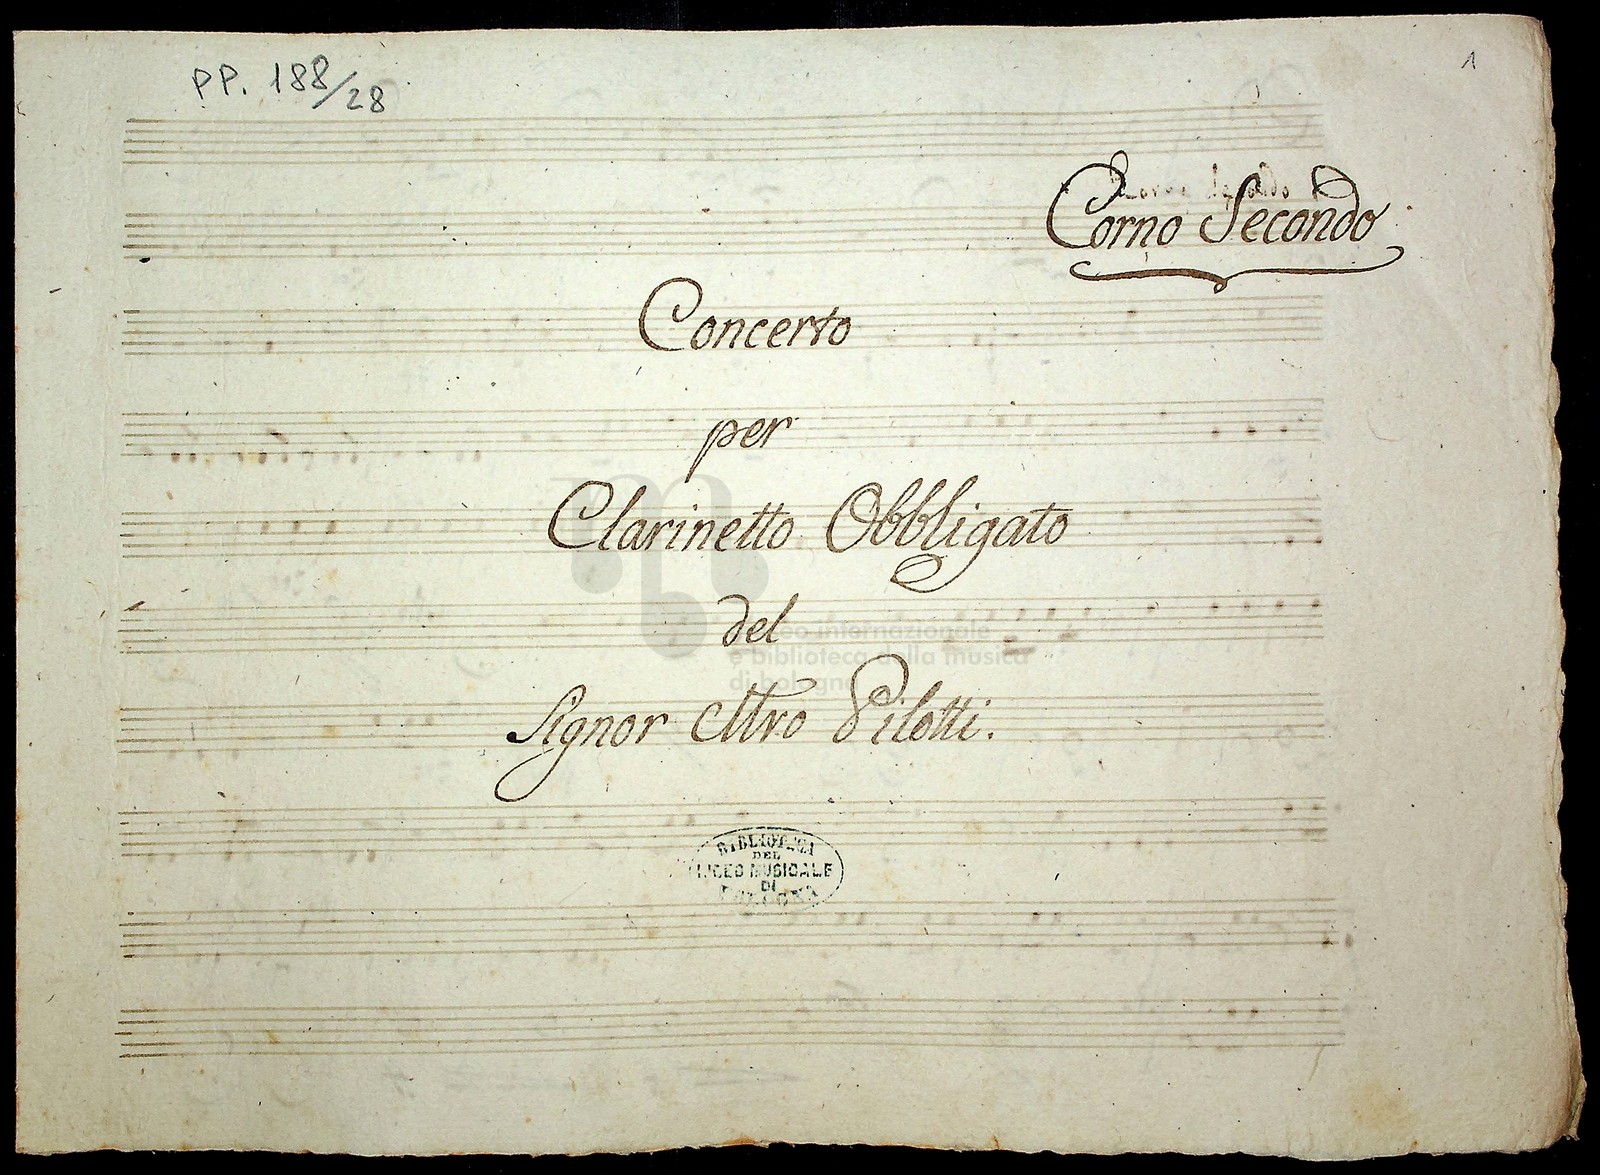 PP. 188/28
1
Corno Secondo
Concerto
per
Clarinetto Obbligato
del
Signor Mro Pilotti.
museo internazionale
e biblioteca della musica
di bologna
BIBLIOTECA
DEL
LICEO MUSICALE
DI
BOLOGNA